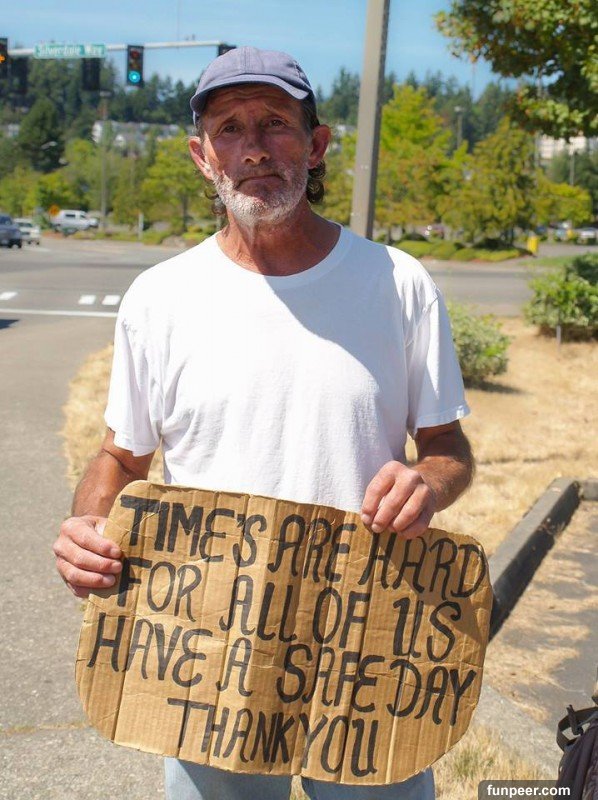 Silverdale Way
TIME'S ARE HARD
FOR ALL OF US
HAVE A SAFE DAY
THANK YOU
funpeer.com